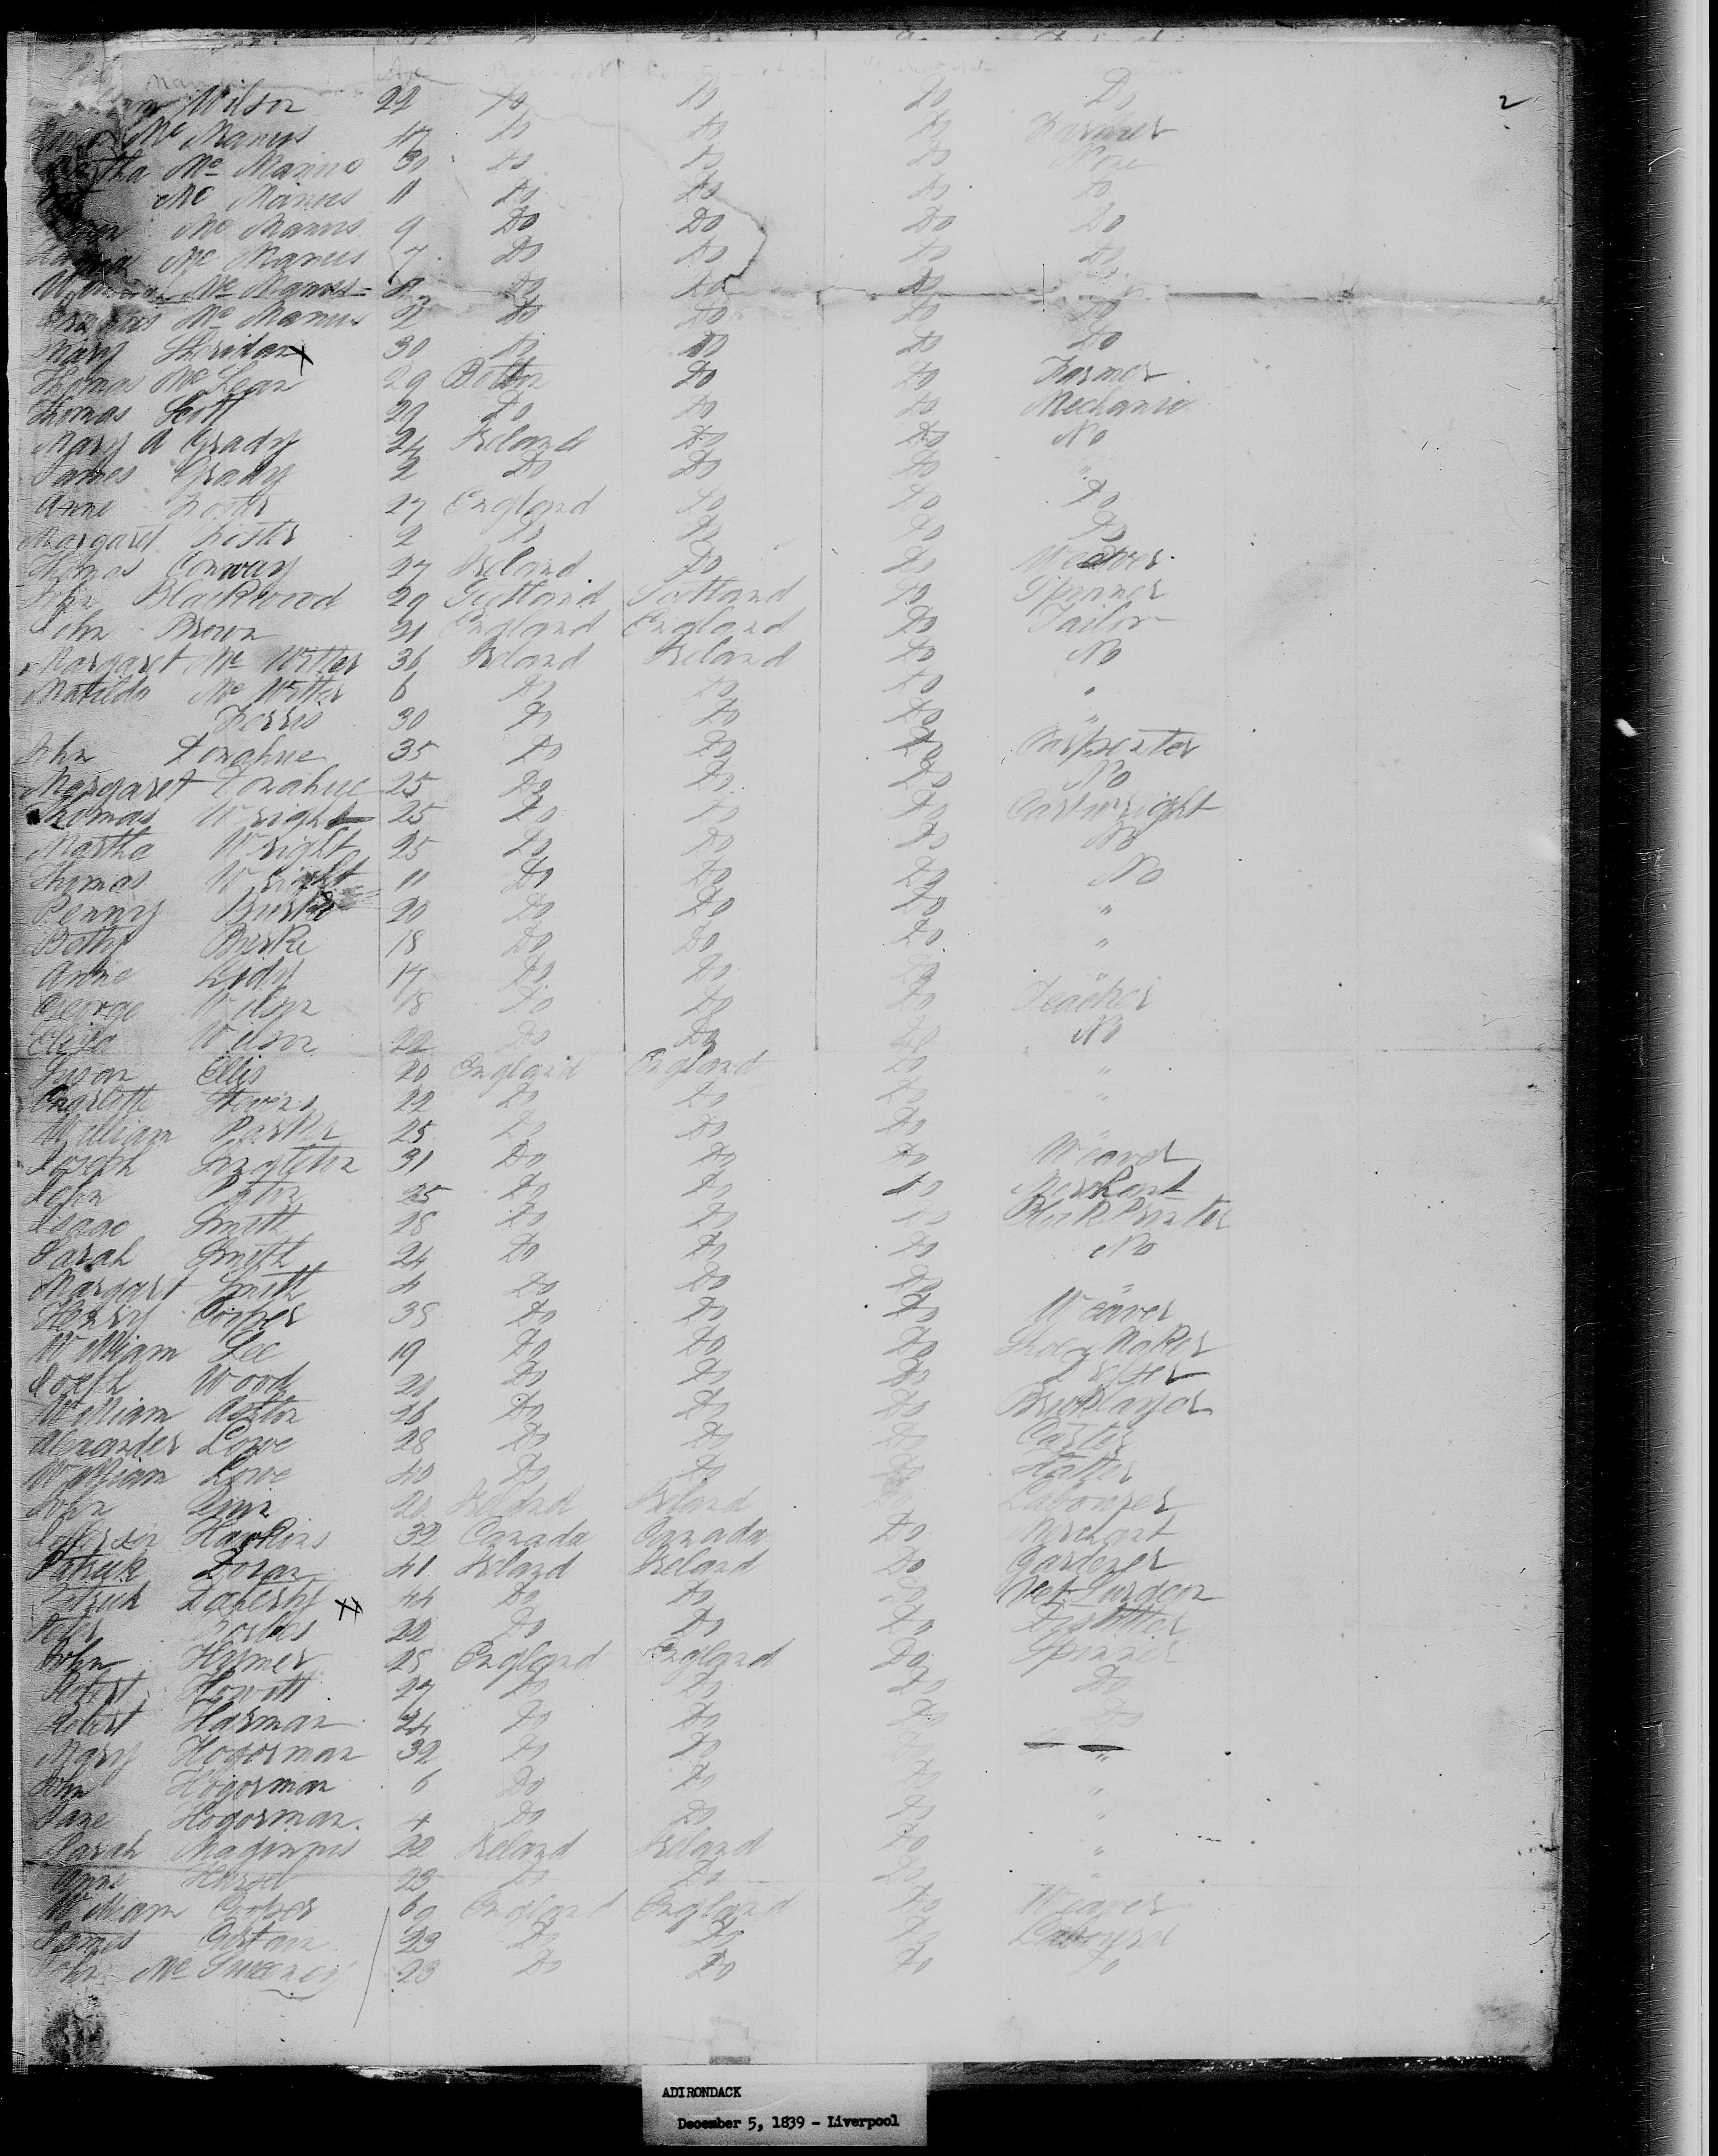 2
Names Age
Wilson 22 Do Do Do Do
Mc Manus 47 Do Do Do Farmer
Martha Mc Manus 30 Do Do Do None
Mc Manus 11 Do Do Do Do
Mc Manus 9 Do Do Do Do
Mc Manus 7 Do Do Do Do
Mc Manus Do Do Do
Mc Manus 2 Do Do Do Do
Mary Sheridan x 30 Do Do Do Do
Thomas McLean 29 Do Do Farmer
Thomas Scott 29 Do Do Do Mechanic
Mary A Grady 24 Ireland Do Do No
James Grady 2 Do Do Do "
Anne 27 England Do Do Do
Margaret 2 Do Do Do Do
Thomas Conway 27 Ireland Do Do Weaver
John Blackwood 29 Scotland Scotland Do Spinner
John Brown 21 England England Do Tailor
Margaret Mc Witter 36 Ireland Ireland Do No
Matilda Mc Witter 6 Do Do Do "
30 Do Do Do "
John Donahue 35 Do Do Do Carpenter
Margaret Donahue 25 Do Do Do No
Thomas Wright 25 Do Do Do Cartwright
Martha Wright 25 Do Do Do No
Thomas Wright 11 Do Do Do No
Penny Burke 20 Do Do Do "
Betty Burke 18 Do Do Do "
Anne 17 Do Do Do "
George Wilson 18 Do Do Do Teacher
Eliza Wilson 22 Do Do Do No
Susan Ellis 20 England England Do "
Charlotte Stevens 22 Do Do Do "
William Parker 25 Do Do Do "
Joseph Singleton 31 Do Do Do Weaver
John 25 Do Do Do Merchant
Isaac Smith 28 Do Do Do Block Printer
Sarah Smith 24 Do Do Do No
Margart Smith 4 Do Do Do "
Henry Cooper 38 Do Do Do Weaver
William Lee 19 Do Do Do Shoe Maker
Joseph Wood 21 Do Do Do
William Ashton 26 Do Do Do Bricklayer
Alexander Lowe 28 Do Do Do Carter
William Lowe 40 Do Do Do Hatter
John 20 Ireland Ireland Do Labourer
Jefferson Hawkins 32 Canada Canada Do Merchant
Patrick Doran 41 Ireland Ireland Do Gardener
Patrick Daherty xx 44 Do Do Do Vet Surgeon
Peter Forbes 22 Do Do Do Distiller
John Hamer 25 England England Do Spinner
Robert Howitt 27 Do Do Do Do
Robert Harman 24 Do Do Do Do
Mary Hogorman 32 Do Do "
John Hogorman 6 Do Do Do "
Jane Hogorman 4 Do Do Do "
Sarah Maginnis 22 Ireland Ireland Do "
Anne 23 Do Do Do "
William Cooper 60 England England Do Weaver
James 23 Do Do Do Labourer
John Mc Sweeney 23 Do Do Do Do
ADIRONDACK
December 5, 1839 - Liverpool